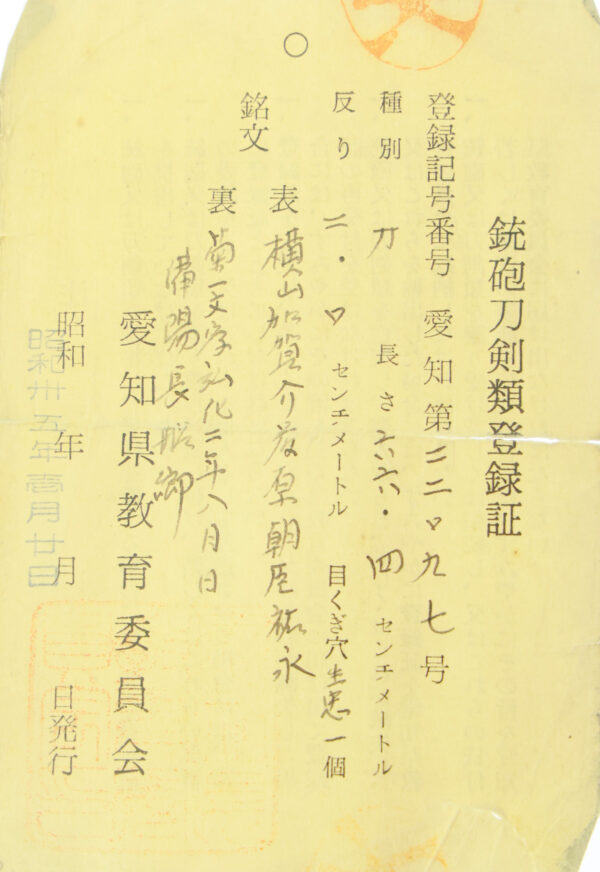 銃砲刀剣類登録証
登録記号番号 愛知第二二〇九七号
種別 刀 長さ 六六・四 センチメートル
反り 二・〇 センチメートル 目くぎ穴 生忠一個
銘文
表 横山加賀介藤原朝臣祐永
裏 菊一文字弘化二年八月日
備陽長船郷
愛知県教育委員会
昭和 年 月 日発行
昭和卅五年壱月廿日